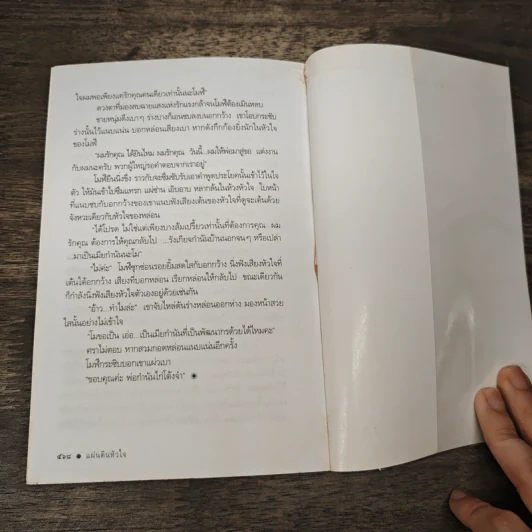 ใจผมพอเพียงแค่รักคุณคนเดียวเท่านั้นนะโมฬี"
ดวงตาที่มองสบฉายแสงแห่งรักแรงกล้าจนโมฬีต้องเมินหลบ
ชายหนุ่มดึงเบาๆ ร่างบางก็เอนซบลงบนอกกว้าง เขาโอบกระชับ
ร่างนั้นไว้แนบแน่น บอกหล่อนเสียงเบา หากดังกึกก้องยิ่งนักในหัวใจ
ของโมฬี
"ผมรักคุณ ได้ยินไหม ผมรักคุณ วันนี้...ผมให้พ่อมาสู่ขอ แต่งงาน
กับผมนะครับ พวกผู้ใหญ่รอคำตอบจากเราอยู่"
โมฬียืนนิ่งขึง ราวกับจะซึมซับรับเอาคำพูดประโยคนั้นเข้าไว้ในใจ
ตัว ให้มันเข้าไปซึมแทรก แผ่ซ่าน เอิบอาบ หลากล้นในห้วงหัวใจ ใบหน้า
ที่แนบซบกับอกกว้างของเขาแนบฟังเสียงเต้นของหัวใจที่ดูจะเต้นด้วย
จังหวะเดียวกับหัวใจของหล่อน
"ได้โปรด ไม่ใช่แต่เพียงบางส้มเปรี้ยวเท่านั้นที่ต้องการคุณ ผม
รักคุณ ต้องการให้คุณกลับไป ...รังเกียจกำนันบ้านนอกจนๆ หรือเปล่า
...มาเป็นเมียกำนันนะโม"
"ไม่ค่ะ" โมฬีซุกซ่อนรอยยิ้มสดใสกับอกกว้าง นิ่งฟังเสียงหัวใจที่
เต้นใต้อกกว้าง เสียงที่บอกหล่อน เรียกหล่อนให้กลับไป ขณะเดียวกัน
ก็กำลังนิ่งฟังเสียงหัวใจตัวเองอยู่ด้วยเช่นกัน
"อ้าว...ทำไมล่ะ" เขาจับไหล่ดันร่างหล่อนออกห่าง มองหน้าสวย
ใสนั้นอย่างไม่เข้าใจ
"โมขอเป็น เอ่อ...เป็นเมียกำนันที่เป็นพัฒนากรด้วยได้ไหมคะ"
ตราไม่ตอบ หากสวมกอดหล่อนแนบแน่นอีกครั้ง
โมฬีกระซิบบอกเขาแผ่วเบา
"ขอบคุณค่ะ พ่อกำนันไก่โต้งจ๋า"
๕๖๘ ● แผ่นดินหัวใจ